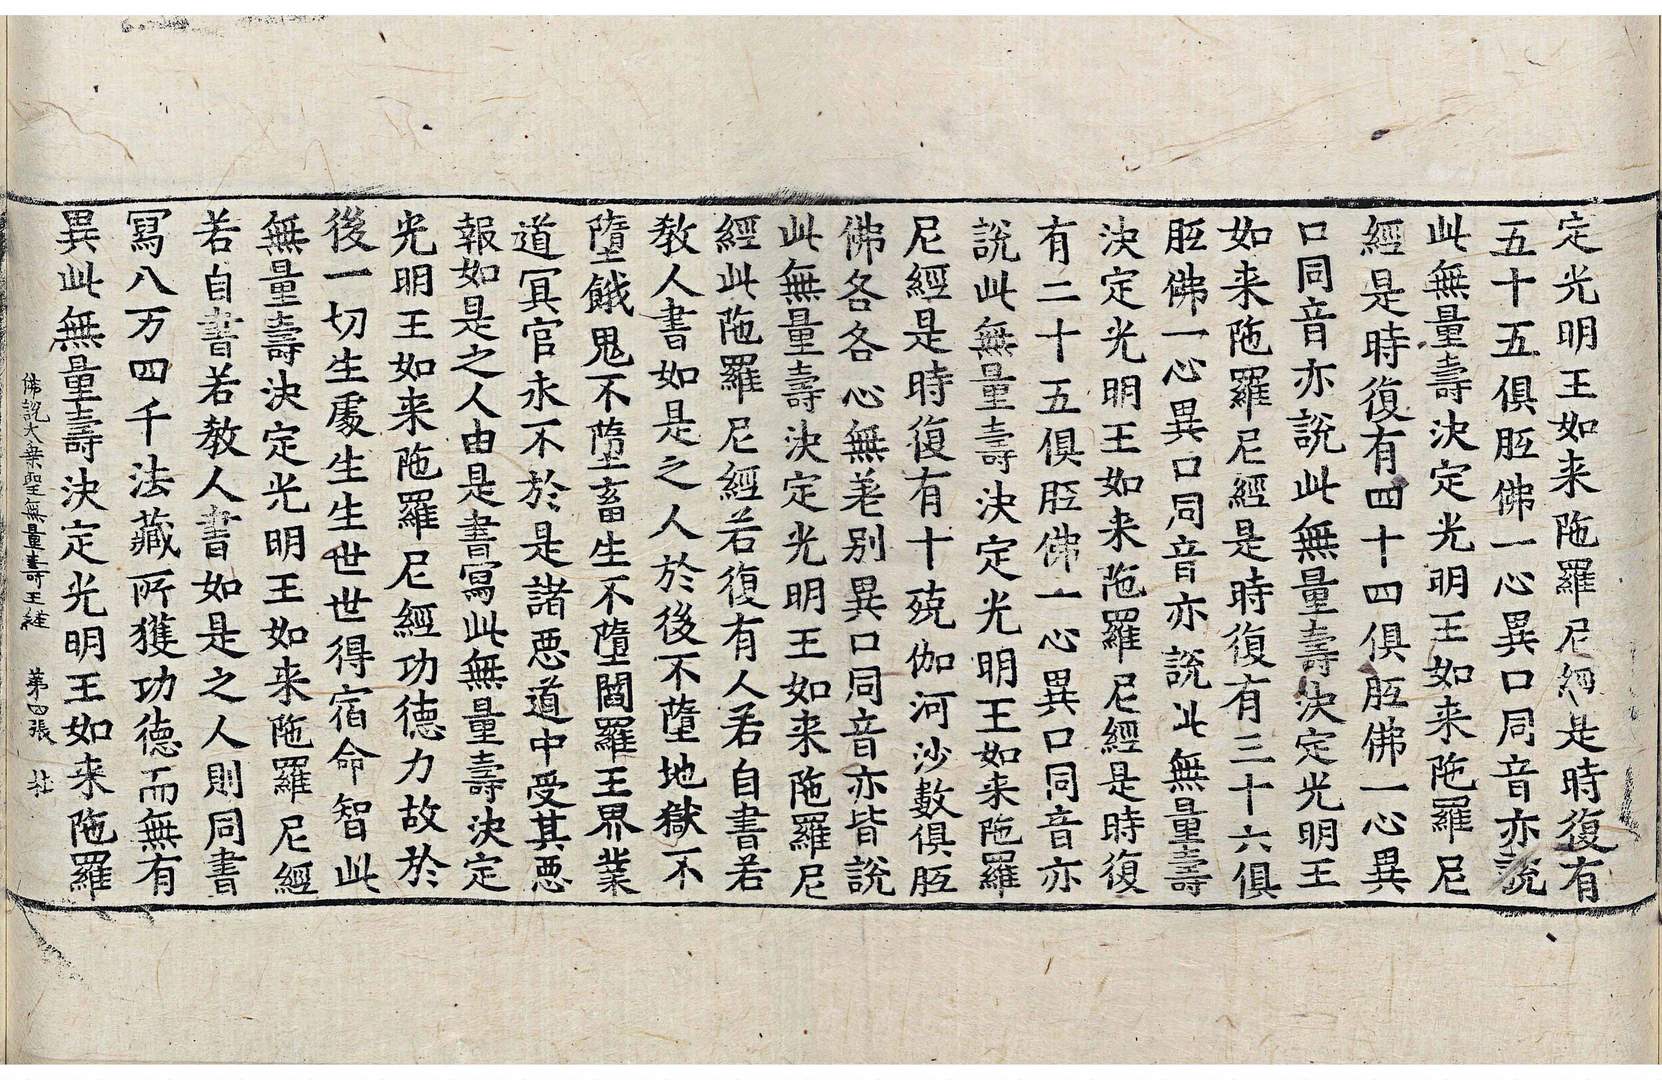 定光明王如来陁羅尼經是時復有
五十五俱胝佛一心異口同音亦說
此無量壽決定光明王如来陁羅尼
經是時復有四十四俱胝佛一心異
口同音亦說此無量壽決定光明王
如来陁羅尼經是時復有三十六俱
胝佛一心異口同音亦說此無量壽
決定光明王如来陁羅尼經是時復
有二十五俱胝佛一心異口同音亦
說此無量壽決定光明王如来陁羅
尼經是時復有十殑伽河沙數俱胝
佛各各心無差別異口同音亦皆說
此無量壽決定光明王如来陁羅尼
經此陁羅尼經若復有人若自書若
教人書如是之人於後不墮地獄不
墮餓鬼不墮畜生不墮閻羅王界業
道冥官永不於是諸惡道中受其惡
報如是之人由是書寫此無量壽決定
光明王如来陁羅尼經功德力故於
後一切生處生生世世得宿命智此
無量壽決定光明王如来陁羅尼經
若自書若教人書如是之人則同書
寫八万四千法藏所獲功德而無有
異此無量壽決定光明王如来陁羅
佛說大乘聖無量壽王経 第四張